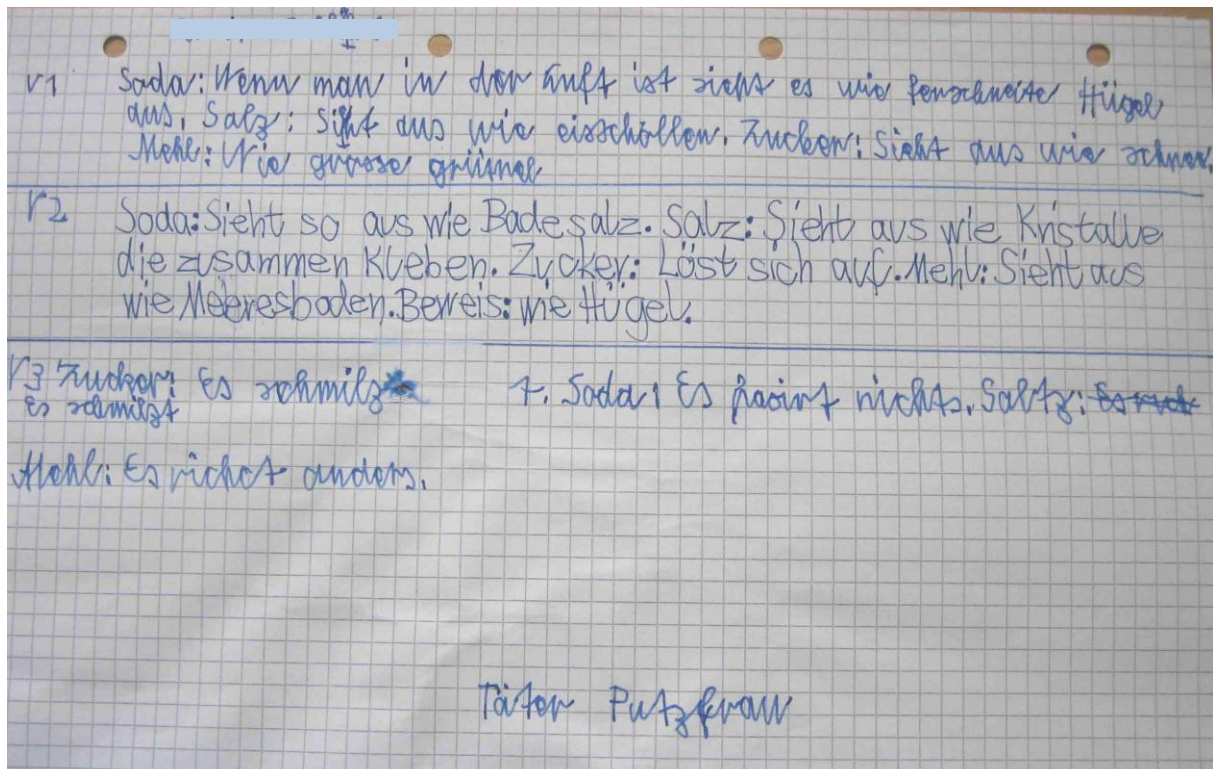 V1 Soda: Wenn man in der Luft ist sieht es wie ferschneite Hügel
aus. Salz: Siht aus wie eisschollen. Zucker: Sieht aus wie schnee.
Mehl: Wie grosse grümel
V2 Soda: Sieht so aus wie Badesalz. Salz: Sieht aus wie Kristalle
die zusammen Kleben. Zucker: Löst sich auf. Mehl: Sieht aus
wie Meeresboden. Beweis: wie Hügel.
V3 Zucker: Es schmilz t. Soda: Es pasirt nichts. Saltz:
Es schmilzt
Mehl: Es richet anders.
Täter Putzfrau